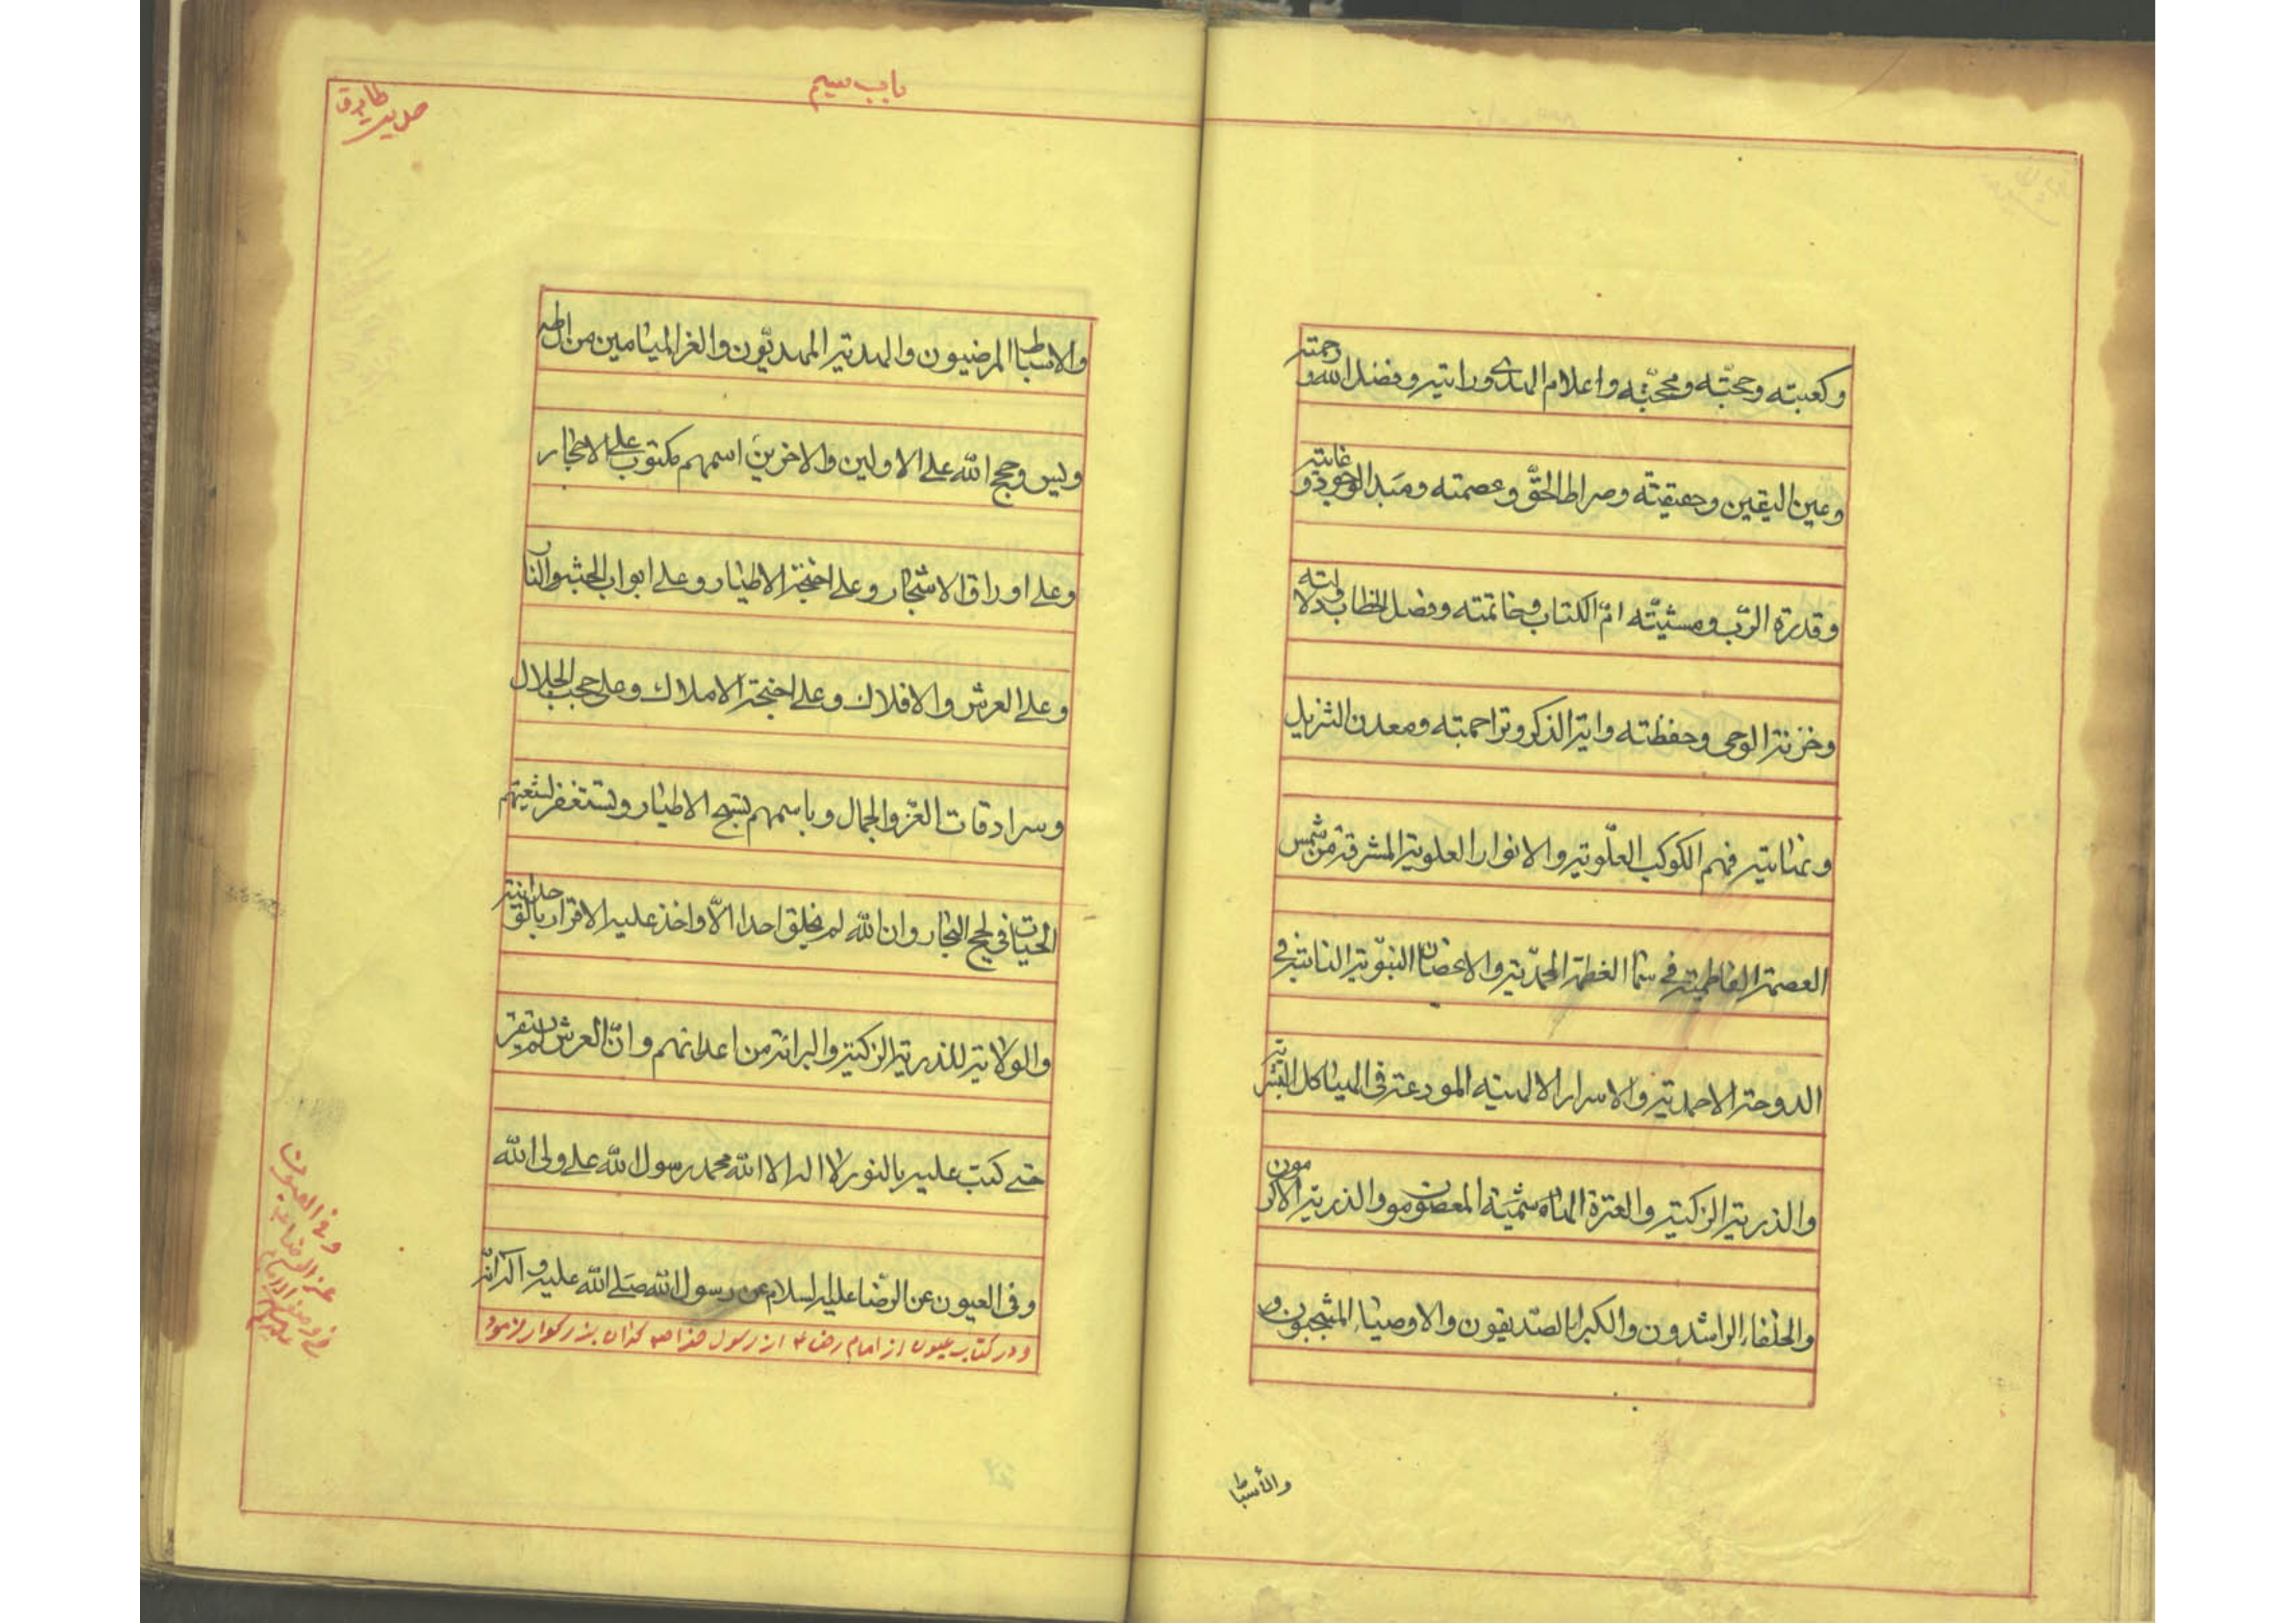 وكعبته وحجّته ومحجّته واعلام الهدى ورايته وفضل الله ورحمته
وعين اليقين وحقيقته وصراط الحقّ وعصمته ومبدا الوجود وغايته
وقدرة الرّب ومشيّته امّ الكتاب وخاتمته وفصل الخطاب ودلالته
وخزنة الوحى وحفظته واية الذكر وتراجمته ومعدن التنزيل
ونهايته فهم الكوكب العلّوية والانوار العلوية المشرقة من شمس
العصمة الفاطمية فى سما العظمة المحمّدية والاغصان النبّوية النابتة فى
الدوحة الاحمدية والاسرار الالهيه المودعة فى الهياكل البشرية
والذرية الزكية والعترة الهاشميّه المعصومون والذرية الاكرمون
والخلفاء الراشدون والكبراء الصّديقون والاوصياء المنتجبون و
والأسباط
باب سیم
حدیث طارق
والاسباط المرضيون والهدية المهديّون والغر الميامين من ال طه
ويس وحجج الله على الاولين والاخرين اسمهم مكتوب على الاحجار
وعلى اوراق الاشجار وعلى اجنحة الاطيار وعلى ابواب الجنة والنار
وعلى العرش والافلاك وعلى اجنحة الاملاك وعلى حجب الجلال
وسرادقات العّز والجمال وباسمهم تسبح الاطيار وتستغفر لشيعتهم
الحيتان فى لجج البحار وان الله لم يخلق احدا الّا واخذ عليه الاقرار بالوحدانية
والولاية للذرية الزكية والبرائة من اعدائهم وانّ العرش لم يستقر
حتى كتب عليه بالنور لا اله الا الله محمد رسول الله على ولى الله
وفى العيون عن الرّضا عليه السلام عن رسول الله صلى الله عليه و اله انّه
ودر کتاب عیون از امام رضا ع از رسول خدا ص که ان بزرکوار فرمود
وفی العیون
عن الرضا ع